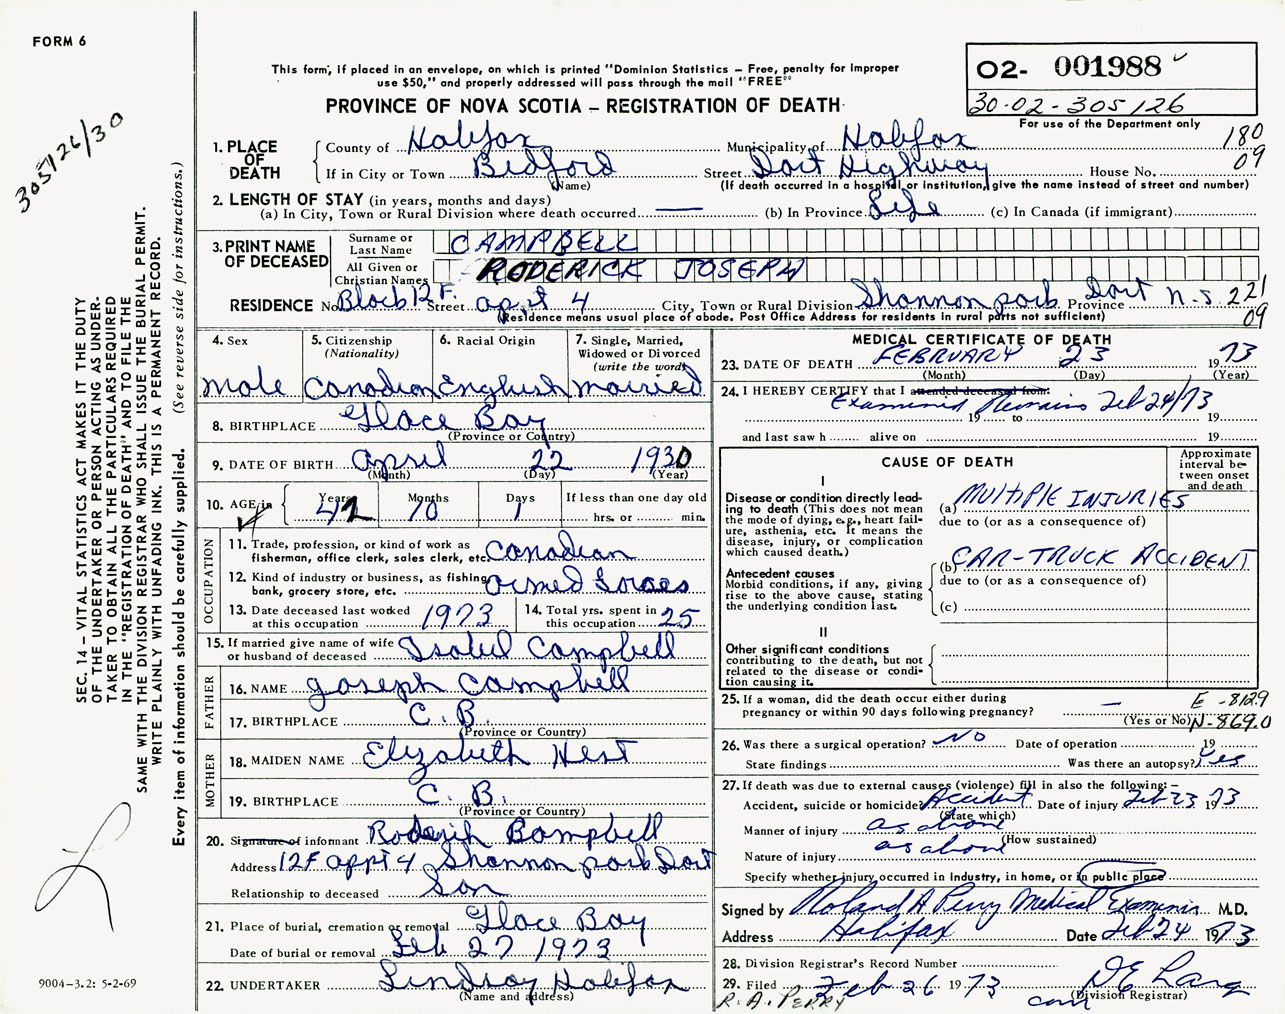 FORM 6
This form, if placed in an envelope, on which is printed "Dominion Statistics – Free, penalty for improper
use $50," and properly addressed will pass through the mail "FREE"
PROVINCE OF NOVA SCOTIA – REGISTRATION OF DEATH
O2- 001988
30-02-305126
For use of the Department only
305126/30
SEC. 14 – VITAL STATISTICS ACT MAKES IT THE DUTY
OF THE UNDERTAKER OR PERSON ACTING AS UNDER-
TAKER TO OBTAIN ALL THE PARTICULARS REQUIRED
IN THE "REGISTRATION OF DEATH" AND TO FILE THE
SAME WITH THE DIVISION REGISTRAR WHO SHALL ISSUE THE BURIAL PERMIT.
WRITE PLAINLY WITH UNFADING INK. THIS IS A PERMANENT RECORD.
Every item of information should be carefully supplied. (See reverse side for instructions.)
9004–3.2: 5-2-69
1. PLACE OF DEATH
County of Halifax Municipality of Halifax 180
If in City or Town Bedford Street Dart Highway House No. 09
(Name) (If death occurred in a hospital or institution, give the name instead of street and number)
2. LENGTH OF STAY (in years, months and days)
(a) In City, Town or Rural Division where death occurred — (b) In Province Life (c) In Canada (if immigrant)
3. PRINT NAME OF DECEASED
Surname or Last Name CAMPBELL
All Given or Christian Names RODERICK JOSEPH
RESIDENCE No. Block 12 F. Street appt 4 City, Town or Rural Division Shannon park Province Dart N.S. 221
(Residence means usual place of abode. Post Office Address for residents in rural parts not sufficient) 09
4. Sex
male
5. Citizenship
(Nationality)
Canadian
6. Racial Origin
English
7. Single, Married,
Widowed or Divorced
(write the word)
married
8. BIRTHPLACE Glace Bay
(Province or Country)
9. DATE OF BIRTH April 22 1930
(Month) (Day) (Year)
10. AGE in Years 42 Months 10 Days 1 If less than one day old
hrs. or min.
OCCUPATION
11. Trade, profession, or kind of work as
fisherman, office clerk, sales clerk, etc. Canadian
12. Kind of industry or business, as fishing,
bank, grocery store, etc. Armed Forces
13. Date deceased last worked
at this occupation 1973
14. Total yrs. spent in
this occupation 25
15. If married give name of wife
or husband of deceased Isabel Campbell
FATHER
16. NAME Joseph Campbell
17. BIRTHPLACE C.B.
(Province or Country)
MOTHER
18. MAIDEN NAME Elizabeth West
19. BIRTHPLACE C.B.
(Province or Country)
20. Signature of informant Roderick Campbell
Address 12F appt 4 Shannon park Dart
Relationship to deceased Son
21. Place of burial, cremation or removal Glace Bay
Date of burial or removal Feb 27 1973
22. UNDERTAKER Lindsay Halifax
(Name and address)
MEDICAL CERTIFICATE OF DEATH
23. DATE OF DEATH FEBRUARY 23 1973
(Month) (Day) (Year)
24. I HEREBY CERTIFY that I attended deceased from:
Examined Remains Feb 24/73
19 to 19
and last saw h alive on 19
CAUSE OF DEATH
Approximate
interval be-
tween onset
and death
I
Disease or condition directly lead-
ing to death (This does not mean
the mode of dying, e.g., heart fail-
ure, asthenia, etc. It means the
disease, injury, or complication
which caused death.)
(a) MULTIPLE INJURIES
due to (or as a consequence of)
Antecedent causes
Morbid conditions, if any, giving
rise to the above cause, stating
the underlying condition last.
(b) CAR-TRUCK ACCIDENT
due to (or as a consequence of)
(c)
II
Other significant conditions
contributing to the death, but not
related to the disease or condi-
tion causing it.
25. If a woman, did the death occur either during
pregnancy or within 90 days following pregnancy? —
(Yes or No)
E-812.9
N-869.0
26. Was there a surgical operation? No Date of operation 19
State findings Was there an autopsy? Yes
27. If death was due to external causes (violence) fill in also the following:–
Accident, suicide or homicide? Accident Date of injury Feb 23 1973
(State which)
Manner of injury as above
(How sustained)
Nature of injury as above
Specify whether injury occurred in industry, in home, or in public place
Signed by Roland A Perry Medical Examiner M.D.
Address Halifax Date Feb 24 1973
28. Division Registrar's Record Number
29. Filed Feb 26 1973
(Division Registrar)
R. A. PERRY